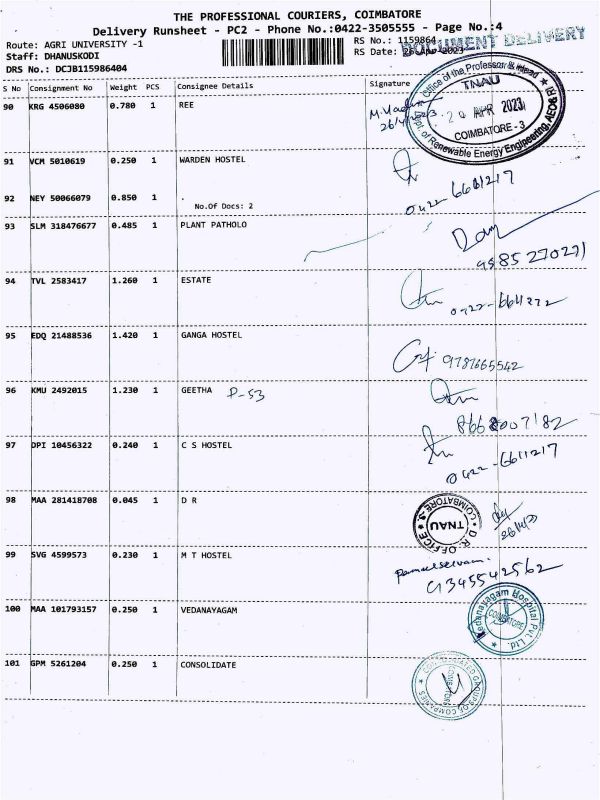 THE PROFESSIONAL COURIERS, COIMBATORE
Delivery Runsheet - PC2 - Phone No.:0422-3505555 - Page No.:4
Route: AGRI UNIVERSITY -1
RS No.: 1159864
DOCUMENT DELIVERY
Staff: DHANUSKODI
RS Date: 26-Apr-2023
DRS No.: DCJB115986404
S No Consignment No Weight PCS Consignee Details Signature
Office of the Professor & Head
TNAU
20 APR 2023
COIMBATORE - 3
Dept. of Renewable Energy Engineering, AEC&RI
90 KRG 4506080 0.780 1 REE
91 VCM 5010619 0.250 1 WARDEN HOSTEL
0422-6611217
92 NEY 50066079 0.850 1 .
No.Of Docs: 2
93 SLM 318476677 0.485 1 PLANT PATHOLO
94 TVL 2583417 1.260 1 ESTATE
95 EDQ 21488536 1.420 1 GANGA HOSTEL
9787665542
96 KMU 2492015 1.230 1 GEETHA P-53
8668007182
97 DPI 10456322 0.240 1 C S HOSTEL
0422-6611217
98 MAA 281418708 0.045 1 D R
D.R. OFFICE
TNAU
COIMBATORE-3
99 SVG 4599573 0.230 1 M T HOSTEL
9345542562
100 MAA 101793157 0.250 1 VEDANAYAGAM
Vedanayagam Hospital Pvt. Ltd.
COIMBATORE
101 GPM 5261204 0.250 1 CONSOLIDATE
CONSOLIDATED GROUPS OF COMPANIES